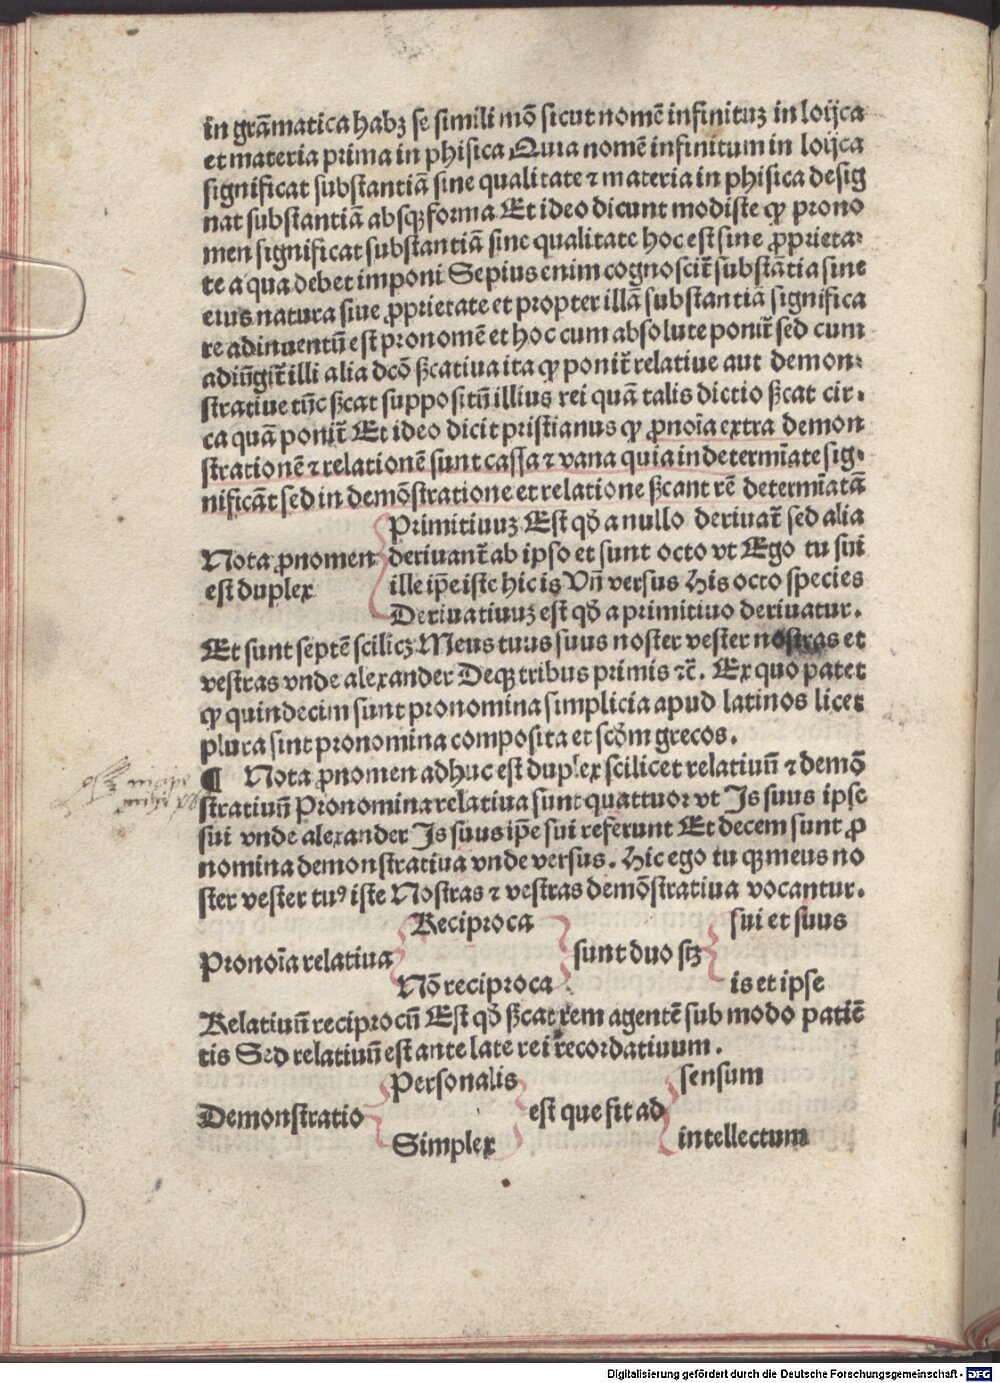 in grãmatica habꝫ se simili mõ sicut nomẽ infinituꝫ in loijca
et materia prima in phisica Quia nomẽ infinitum in loijca
significat substantiã sine qualitate ⁊ materia in phisica desig
nat substantiã absqꝫ forma Et ideo dicunt modiste ꝙ prono
men significat substantiã sine qualitate hoc est sine ꝓprieta⸗
te a qua debet imponi Sepius enim cognoscit̃ substãtia sine
eius natura siue ꝓprietate et propter illã substantiã significa
re adinuentũ est pronomẽ et hoc cum absolute ponit̃ sed cum
adiũgit̃ illi alia dcõ ßcatiua ita ꝙ ponit̃ relatiue aut demon⸗
stratiue tũc ßcat suppositũ illius rei quã talis dictio ßcat cir⸗
ca quã ponit̃ Et ideo dicit pristianus ꝙ ꝓnoĩa extra demon
strationẽ ⁊ relationẽ sunt cassa ⁊ vana quia indetermĩate sig⸗
nificãt sed in demõstratione et relatione ßcant rẽ determĩatã
Primitiuuꝫ Est qð a nullo deriuat̃ sed alia
Nota ꝓnomen deriuant̃ ab ipso et sunt octo vt Ego tu sui
est duplex ille ip̃e iste hic is Vñ versus His octo species
Deriuatiuuꝫ est qð a primitiuo deriuatur.
Et sunt septẽ scilicꝫ Meus tuus suus noster vester nostras et
vestras vnde alexander Deqꝫ tribus primis ⁊c̃. Ex quo patet
ꝙ quindecim sunt pronomina simplicia apud latinos licet
plura sint pronomina composita et scðm grecos.
¶ Nota ꝓnomen adhuc est duplex scilicet relatiuũ ⁊ demõ
stratiuũ Pronomina relatiua sunt quattuor vt Is suus ipse
sui vnde alexander Is suus ip̃e sui referunt Et decem sunt ꝓ
nomina demonstratiua vnde versus. Hic ego tu qꝫ meus no
ster vester tuꝰ iste Nostras ⁊ vestras demõstratiua vocantur.
Reciproca sui et suus
Pronoĩa relatiua sunt duo sꝫ
Nõ reciproca is et ipse
Relatiuũ reciprocũ Est qð ßcat rem agentẽ sub modo patiẽ
tis Sed relatiuũ est ante late rei recordatiuum.
Personalis sensum
Demonstratio est que fit ad
Simplex intellectum
Digitalisierung gefördert durch die Deutsche Forschungsgemeinschaft - DFG